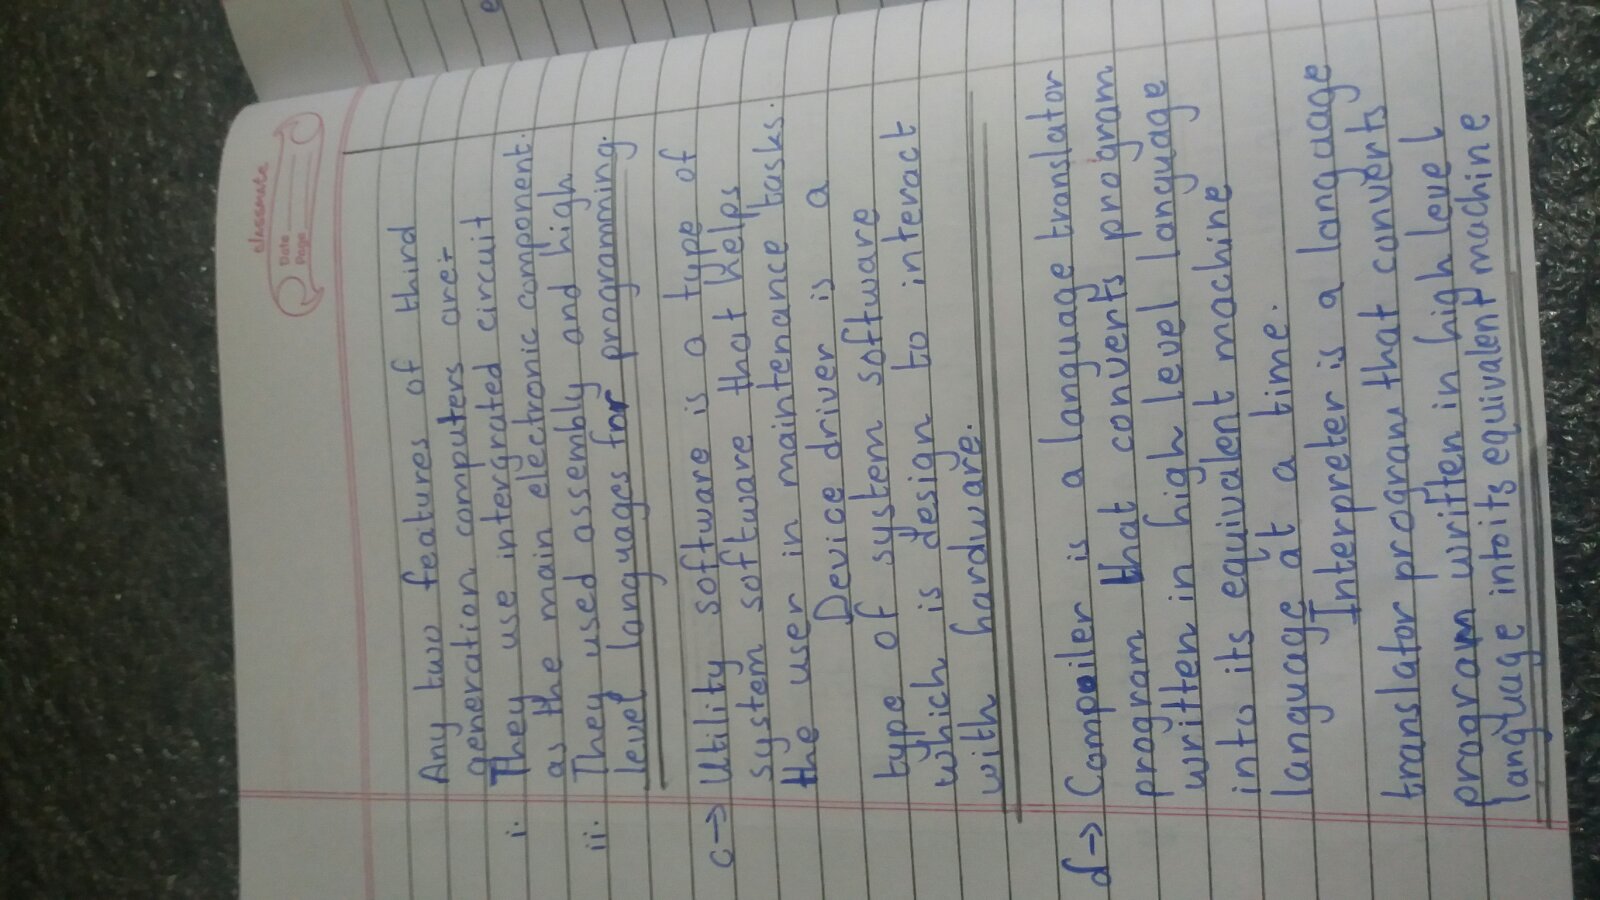 classmate
Date
Page
Any two features of third
generation computers are:-
i. They use intergrated circuit
as the main electronic component.
ii. They used assembly and high
level languages for programming.
c→ Utility software is a type of
system software that helps
the user in maintenance tasks.
Device driver is a
type of system software
which is design to interact
with hardware.
d→ Compiler is a language translator
program that converts program
written in high level language
into its equivalent machine
language at a time.
Interpreter is a language
translator program that converts
program written in high level
language into its equivalent machine